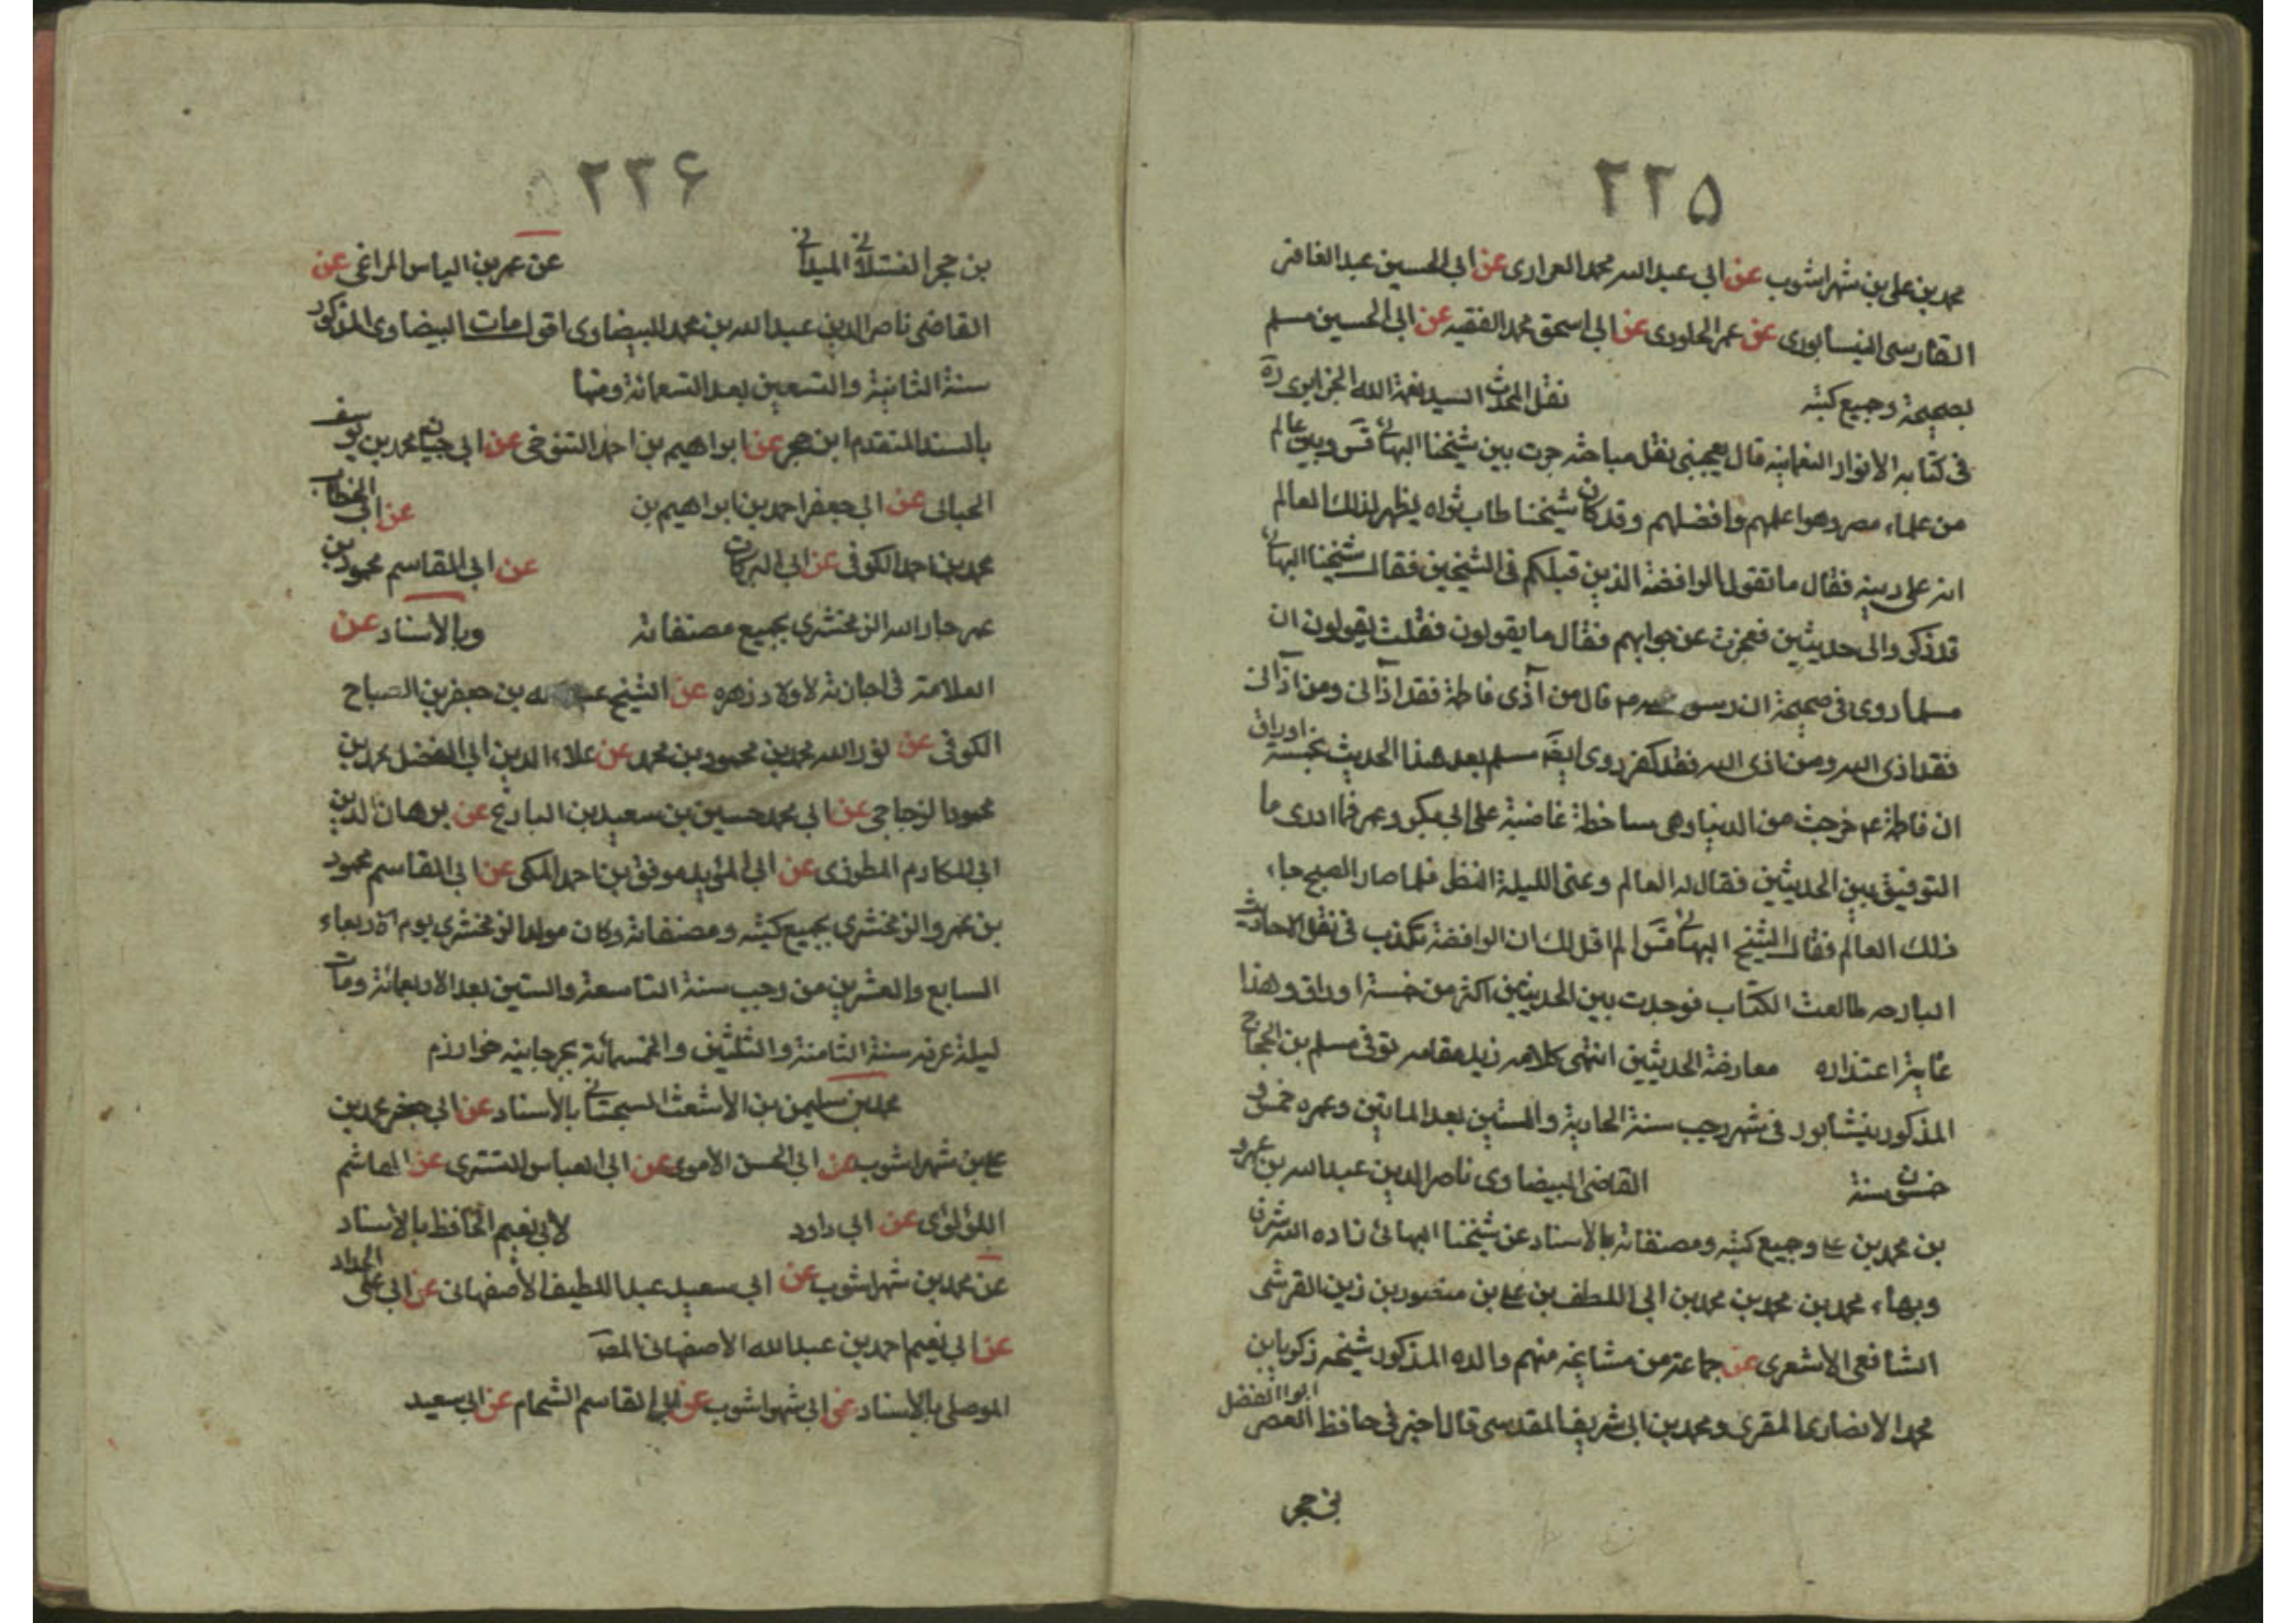 ٢٢٥
محمد بن علی بن شهراشوب عن ابی عبد الله محمد الفراری عن ابی الحسین عبد الغافر
الفارسی النیسابوری عن عمر الجلودی عن ابی اسحق محمد الفقیه عن ابی الحسین مسلم
بصحیحة وجمیع کتبه نقل المحدث السید نعمة الله الجزایری ره
فی کتابه الانوار النعمانیه قال یعجبنی نقل مباحثه جرت بین شیخنا البهائی قس وبین عالم
من علماء مصر وهو اعلمهم وافضلهم وقد کان شیخنا طاب ثراه یظهر لذلك العالم
انه علی دینه فقال ما تقول الرافضة الذین قبلکم فی الشیخین فقال شیخنا البهائی
قد ذکروا لی حدیثین فعجزت عن جوابهم فقال ما یقولون فقلت یقولون ان
مسلما روی فی صحیحة ان رسول الله ص قال من آذی فاطمة فقد آذانی ومن آذانی
فقد اذی الله ومن اذی الله فقد کفر وروی ایضا مسلم بعد هذا الحدیث بخمسة اوراق
ان فاطمة ع خرجت من الدنیا وهی ساخطة غاضبة علی ابی بکر وعمر فما ادری ما
التوفیق بین الحدیثین فقال له العالم دعنی اللیلة انظر فلما صار الصبح جاء
ذلك العالم فقال الشیخ البهائی قس الم اقل لك ان الرافضة تکذب فی نقل الاحادیث
البارحه طالعت الکتاب فوجدت بین الحدیثین اکثر من خمسة اوراق وهذا
غایة اعتذاره معارضة الحدیثین انتهی کلامه زید مقامه توفی مسلم بن الحجاج
المذکور بنیشابور فی شهر رجب سنة الحادیة والستین بعد الماتین وعمره خمس و
خمسون سنة القاضی البیضاوی ناصر الدین عبد الله بن عمرد
بن محمد بن علی وجمیع کتبه ومصنفاته بالاسناد عن شیخنا البهائی زاده الله شرفا
وبهاء محمد بن محمد بن محمد بن ابی اللطف بن علی بن منصور بن زین القرشی
الشافعی الاشعری عن جماعة من مشایخه منهم والده المذکور شیخه زکریا بن
محمد الانصاری المقری ومحمد بن ابی شریف المقدسی قالا اخبرنی حافظ العصر ابوا الفضل
بن حجر
٢٢۶
بن حجر العسقلانی المیلانی عن عمر بن الیاس المراغی عن
القاضی ناصر الدین عبد الله بن محمد البیضاوی اقول مات البیضاوی المذکور
سنة الثانیة والتسعین بعد التسعمائة ومنها
بالسند المتقدم ابن حجر عن ابراهیم بن احمد التنوخی عن ابی حیان محمد بن یوسف
الحیانی عن ابی جعفر احمد بن ابراهیم بن عن ابی الخطاب
محمد بن احمد الکوفی عن ابی البرکات عن ابی القاسم محمود بن
عمر جار الله الزمخشری بجمیع مصنفاته وبالاسناد عن
العلامة فی اجازته لاولاد زهره عن الشیخ عبد الله بن جعفر بن الصباح
الکوفی عن نور الله محمد بن محمود بن محمد عن علاء الدین ابی الفضل محمد بن
محمود الزجاجی عن ابی محمد حسین بن سعید بن البارع عن برهان الدین
ابی المکارم المطرزی عن ابی المؤید موفق بن احمد المکی عن ابی القاسم محمود
بن عمرو الزمخشری بجمیع کتبه ومصنفاته وکان مولد الزمخشری یوم الاربعاء
السابع والعشرین من رجب سنة التاسعة والستین بعد الاربعمائة ومات
لیلة عرفه سنة الثامنة والثلثین والخمسمائة بجرجانیه خوارزم
محمد بن سلیمن بن الأشعث السجستانی بالأسناد عن ابی جعفر محمد بن
علی بن شهراشوب عن ابی الحسن الأموی عن ابی العباس التستری عن الهاشم
اللؤلؤی عن ابی داود لأبی نعیم الحافظ بالاسناد
عن محمد بن شهراشوب عن ابی سعید عبد اللطیف الأصفهانی عن ابی علی الحداد
عن ابی نعیم احمد بن عبد الله الاصفهانی
الموصلی بالاسناد عن ابی شهراشوب عن ابی القاسم الشحام عن ابی سعید